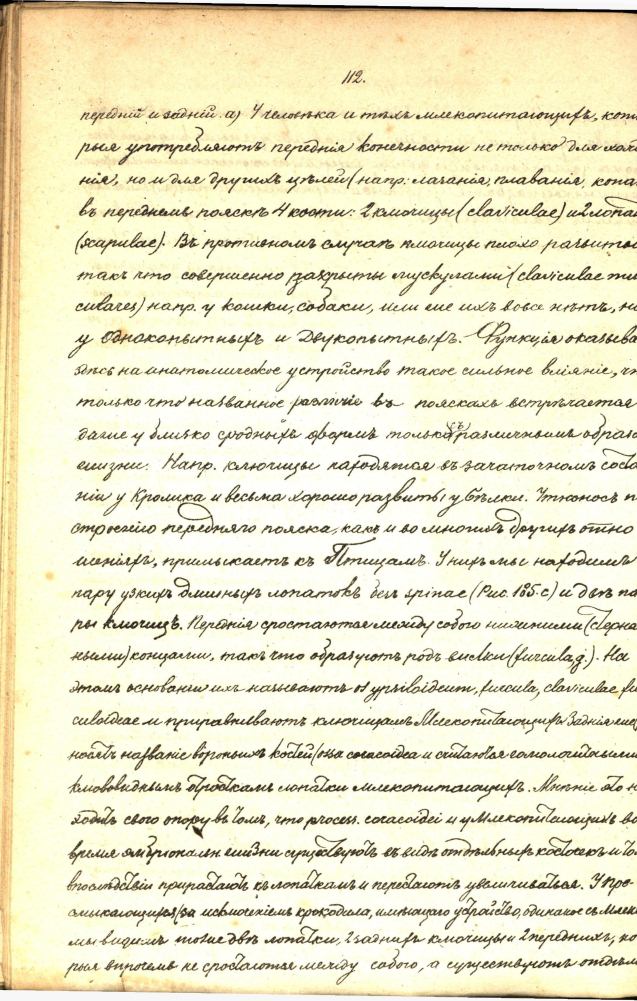 112.
передній и задній. а) У человѣка и тѣхъ млекопитающихъ, кото
рыя употребляютъ переднія конечности не только для хожде
нія, но и для другихъ цѣлей (напр. лазанія, плаванія, копа
въ переднемъ пояскѣ 4 кости: 2 ключицы (claviculae) и 2 лопат
(scapulae). Въ противномъ случаѣ ключицы плохо развиты
такъ что совершенно закрыты мускулами (claviculae mus
culares) напр. у кошки, собаки, или же ихъ вовсе нѣтъ, на
у однокопытныхъ и двукопытныхъ. Функція оказыва
здѣсь на анатомическое устройство такое сильное вліяніе, чт
только что названное различіе въ поясахъ встрѣчается
даже у близко сродныхъ формъ только съ различнымъ образо
жизни. Напр. ключицы находятся въ зачаточномъ состо
ніи у Кролика и весьма хорошо развиты у бѣлки. Утконосъ п
строенію передняго пояска, какъ и во многихъ другихъ отно
шеніяхъ, примыкаетъ къ Птицамъ. У нихъ мы находимъ
пару узкихъ длинныхъ лопатокъ безъ spinae (Рис. 185. c) и двѣ па
ры ключицъ. Переднія сростаются между собою нижними (стерна
ными) концами, такъ что образуютъ родъ вилки (furcula, g.). На
этомъ основаніи ихъ называютъ os ypsiloideum, furcula, claviculae fur
culoideae и приравниваютъ ключицамъ Млекопитающихъ. Заднія
ность названіе вороньихъ костей (ossa coracoidea и считаются гомологичными
клювовиднымъ отросткамъ лопатки млекопитающихъ. Мнѣніе это на
ходитъ свою опору въ томъ, что process. coracoidei и у Млекопитающихъ во
время эмбріональн. жизни существуютъ въ видѣ отдѣльныхъ косточекъ и
впослѣдствіи прирастаютъ къ лопаткамъ и перестаютъ увеличиваться. У Пре-
смыкающихся (за исключеніемъ крокодила, имѣющаго устройство, одинакое съ Млеко
мы видимъ тоже двѣ лопатки, 2 заднихъ ключицы и 2 переднихъ, ко
рыя впрочемъ не сростаются между собою, а существуютъ отдѣль